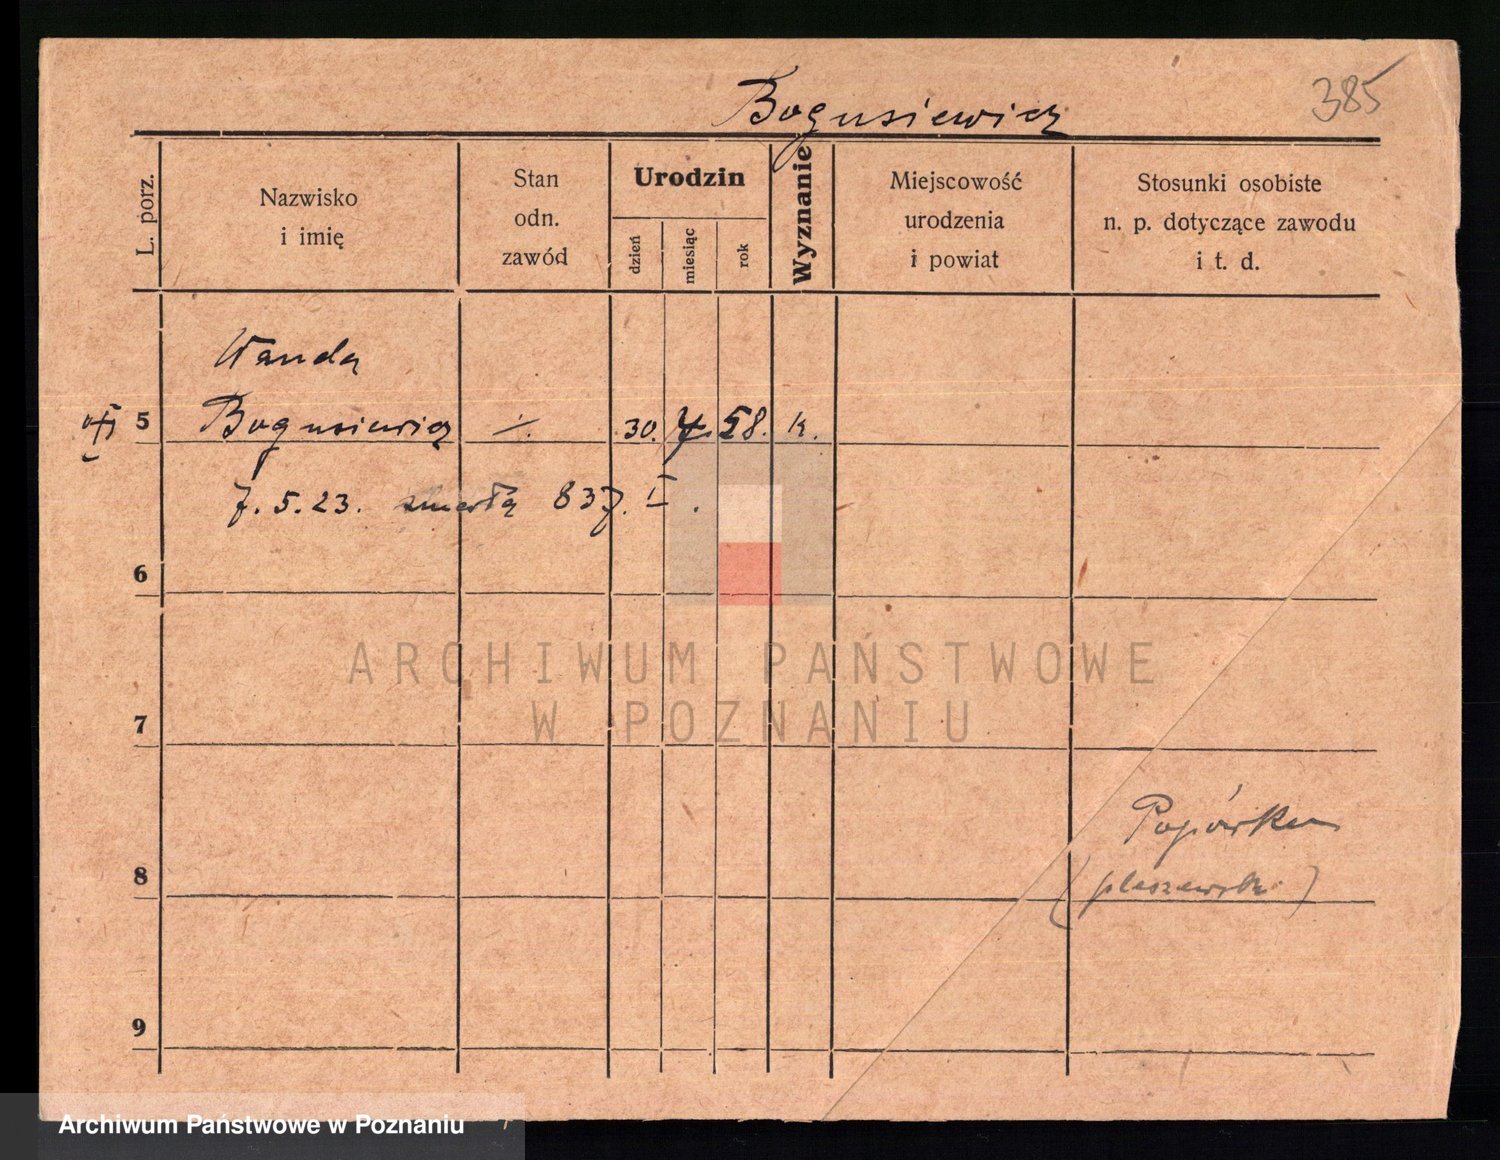 Bogusiewicz
385
L. porz.
Nazwisko
i imię
Stan
odn.
zawód
Urodzin
dzień
miesiąc
rok
Wyznanie
Miejscowość
urodzenia
i powiat
Stosunki osobiste
n. p. dotyczące zawodu
i t. d.
Wanda
5 Bogusiewicz ·/. 30. 7. 58. k.
7. 5. 23. zmarła 837. I.
6
ARCHIWUM PAŃSTWOWE
W POZNANIU
7
8
(pleszewski)
9
Archiwum Państwowe w Poznaniu